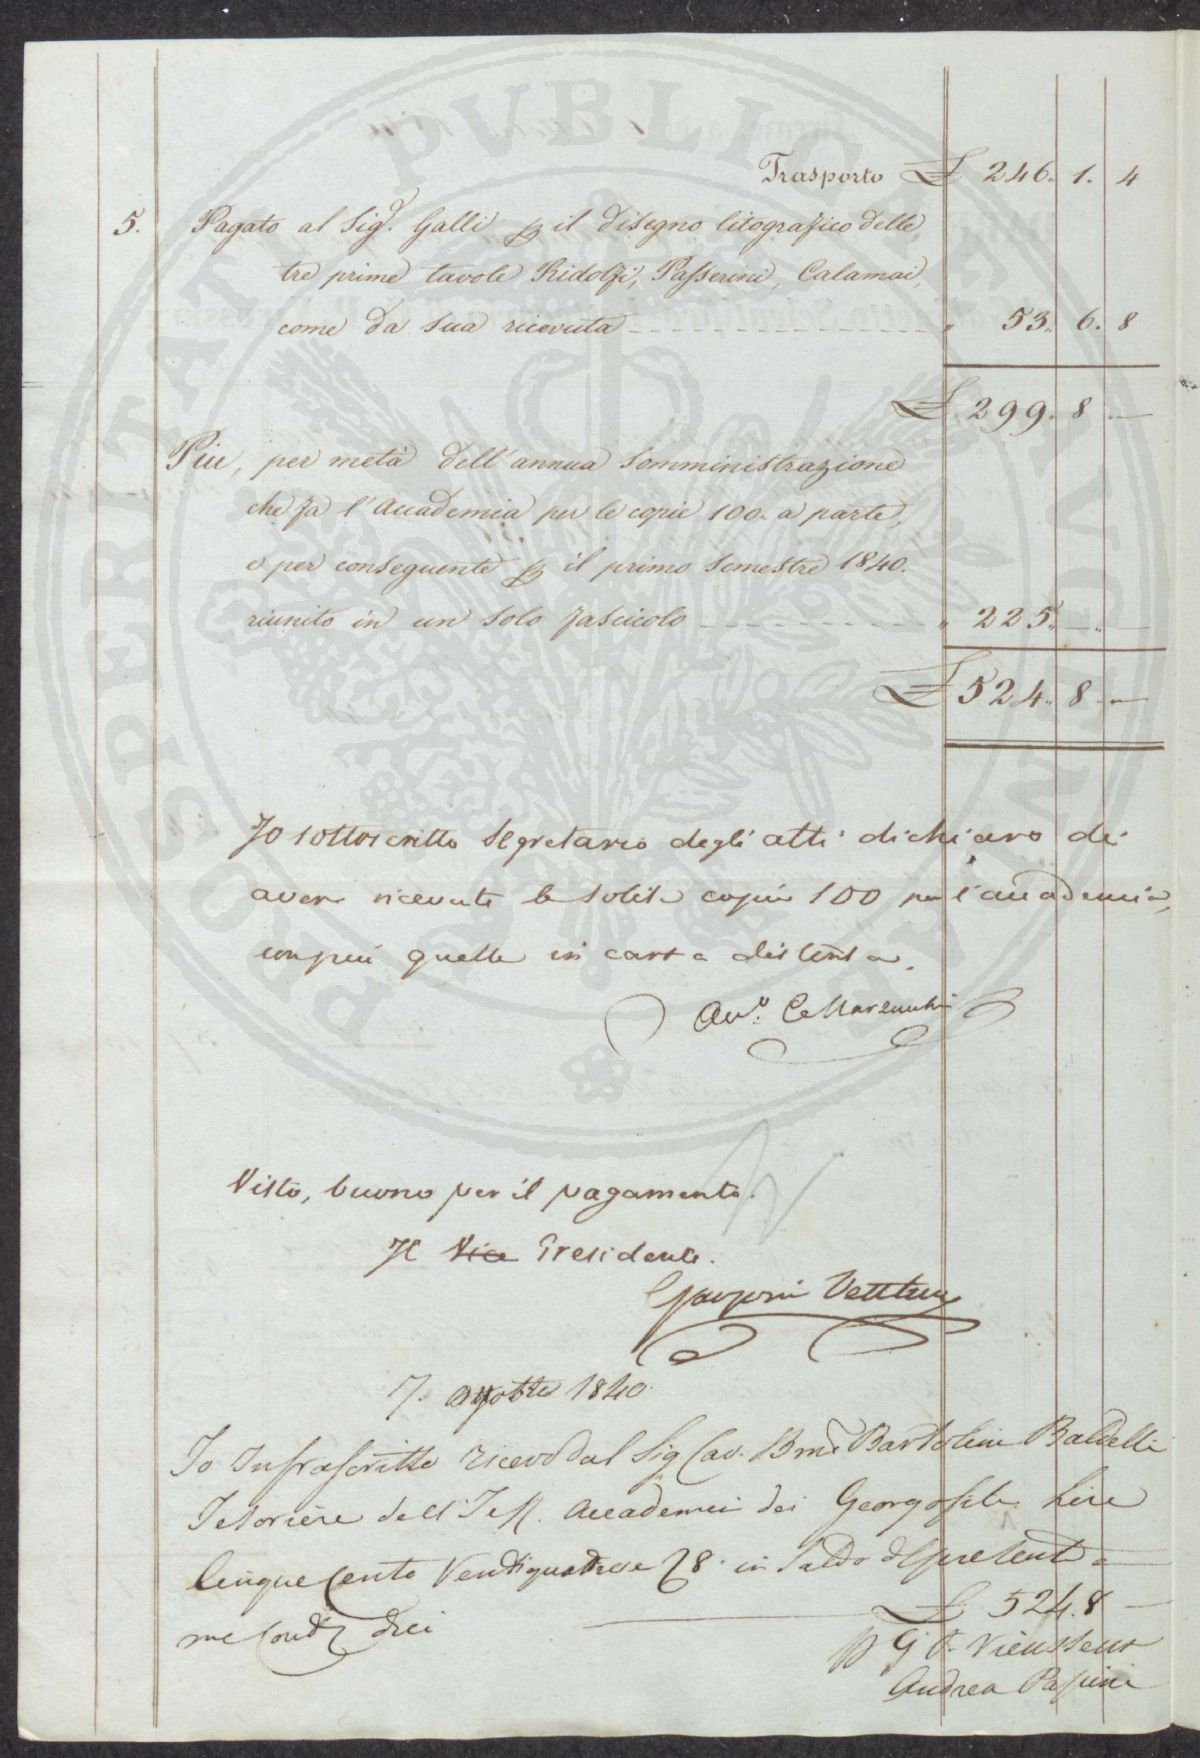 PROSPERITATI PVBLICAE AVGENDAE
Trasporto £ 246. 1. 4
5. Pagato al Sig.r Galli p il disegno litografico delle
tre prime tavole Ridolfi, Passerini, Calamai,
come da sua ricevuta " 53. 6. 8
£ 299. 8. —
Piu, per metà dell'annua somministrazione
che fa l'Accademia per le copie 100. a parte,
e per conseguente p il primo semestre 1840.
riunito in un solo fascicolo " 225. — —
£ 524. 8. —
Io sottoscritto Segretario degli atti dichiaro di
aver ricevute le solite copie 100 per l'accademia,
con più quelle in carta distinta.
Visto, buono per il pagamento.
Il Vice Presidente.
7. 1840.
Io Infrascritto Ricevo dal Sig Cav. Bartolini Baldelli
Tesoriere dell' Accademia dei Georgofili Lire
Cinque Cento Ventiquattro e 8. in Saldo del presente a
£ 524.8 —
me dici
p G P. Vieusseux
Andrea Papini